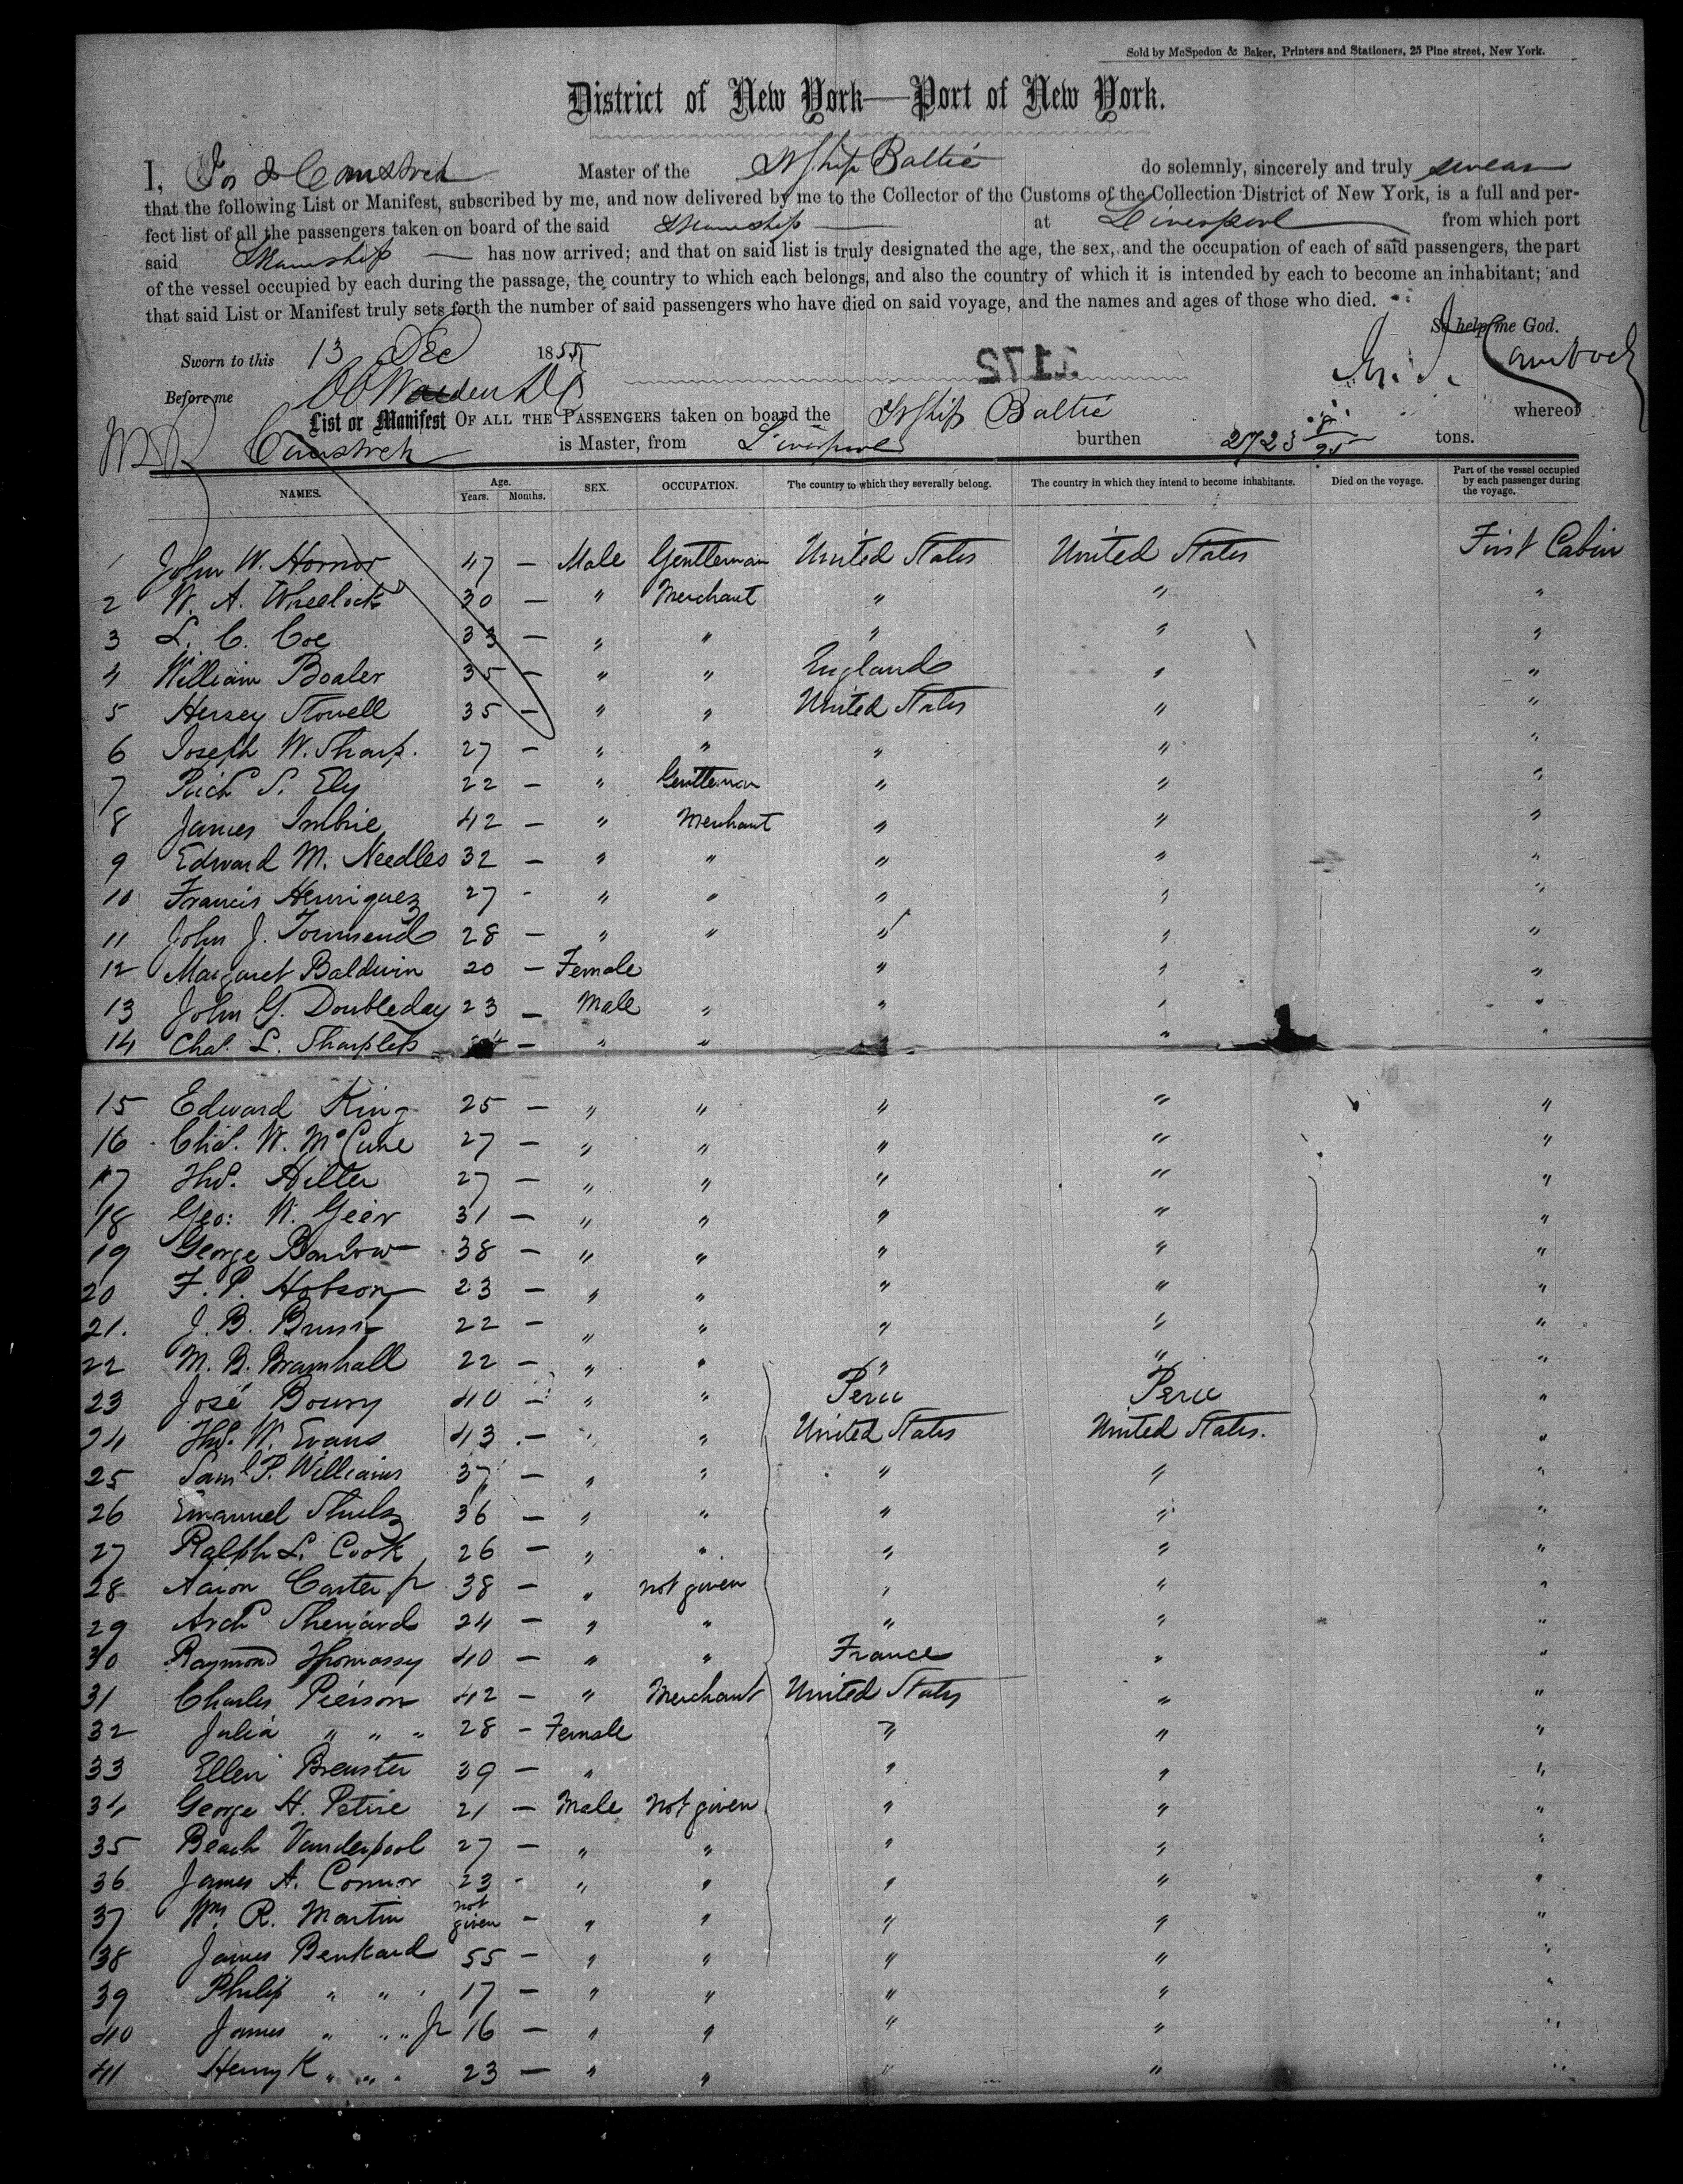 Sold by McSpedon & Baker, Printers and Stationers, 25 Pine street, New York.
District of New York—Port of New York.
I, Jos J Comstock Master of the StShip Baltic do solemnly, sincerely and truly swear
that the following List or Manifest, subscribed by me, and now delivered by me to the Collector of the Customs of the Collection District of New York, is a full and per-
fect list of all the passengers taken on board of the said Steamship at Liverpool from which port
said Steamship has now arrived; and that on said list is truly designated the age, the sex, and the occupation of each of said passengers, the part
of the vessel occupied by each during the passage, the country to which each belongs, and also the country of which it is intended by each to become an inhabitant; and
that said List or Manifest truly sets forth the number of said passengers who have died on said voyage, and the names and ages of those who died.
So help me God.
Sworn to this 13 Dec 1855
1172
Before me
List or Manifest OF ALL THE PASSENGERS taken on board the StShip Baltic whereof
Comstock is Master, from Liverpool burthen 2723 8/95 tons.
NAMES. Age. Years. Months. SEX. OCCUPATION. The country to which they severally belong. The country in which they intend to become inhabitants. Died on the voyage. Part of the vessel occupied by each passenger during the voyage.
1 John W. Hornor 47 — Male Gentleman United States United States First Cabin
2 W. A. Wheelock 30 — " Merchant " " "
3 L. C. Coe 33 — " " " " "
4 William Boaler 35 — " " England " "
5 Hersey Stowell 35 — " " United States " "
6 Joseph W. Tharp. 27 — " " " " "
7 Richd S. Ely 22 — " Gentleman " " "
8 James Imbrie 42 — " Merchant " " "
9 Edward M. Needles 32 — " " " " "
10 Francis Henriquez 27 - " " " " "
11 John J. Townsend 28 — " " " " "
12 Margaret Baldwin 20 — Female " " "
13 John G. Doubleday 23 — Male " " " "
14 Chas. L. Sharpless — " " " "
15 Edward King 25 — " " " " "
16 Chas. W. McCune 27 — " " " " "
17 Thos. Hilter 27 — " " " " "
18 Geo: W. Geer 31 — " " " " "
19 George Barlow 38 — " " " " "
20 F. P. Hobson 23 — " " " " "
21. J. B. 22 — " " " " "
22 M. B. Bramhall 22 — " " " " "
23 José Boury 40 — " " Peru Peru "
24 Thos. W. Evans 43 — " " United States United States. "
25 Saml P. Williams 37 — " " " " "
26 Emanuel 36 — " " " " "
27 Ralph L. Cook 26 — " " " " "
28 Aaron Carter Jr 38 — " not given " " "
29 Archd 24 — " " " " "
30 Raymond Thomassy 40 — " " France " "
31 Charles Peirson 42 — " Merchant United States " "
32 Julia " " " 28 - Female " " "
33 Ellen Brewster 39 — " " " "
34 George H. Petrie 21 — Male Not given " " "
35 Beach Vanderpool 27 — " " " " "
36 James A. Connor 23 - " " " " "
37 Wm. R. Martin not given — " " " " "
38 James Benkard 55 — " " " " "
39 Philip " " " 17 — " " " " "
40 James " " " Jr 16 — " " " " "
41 Henry K " " " 23 — " " " " "